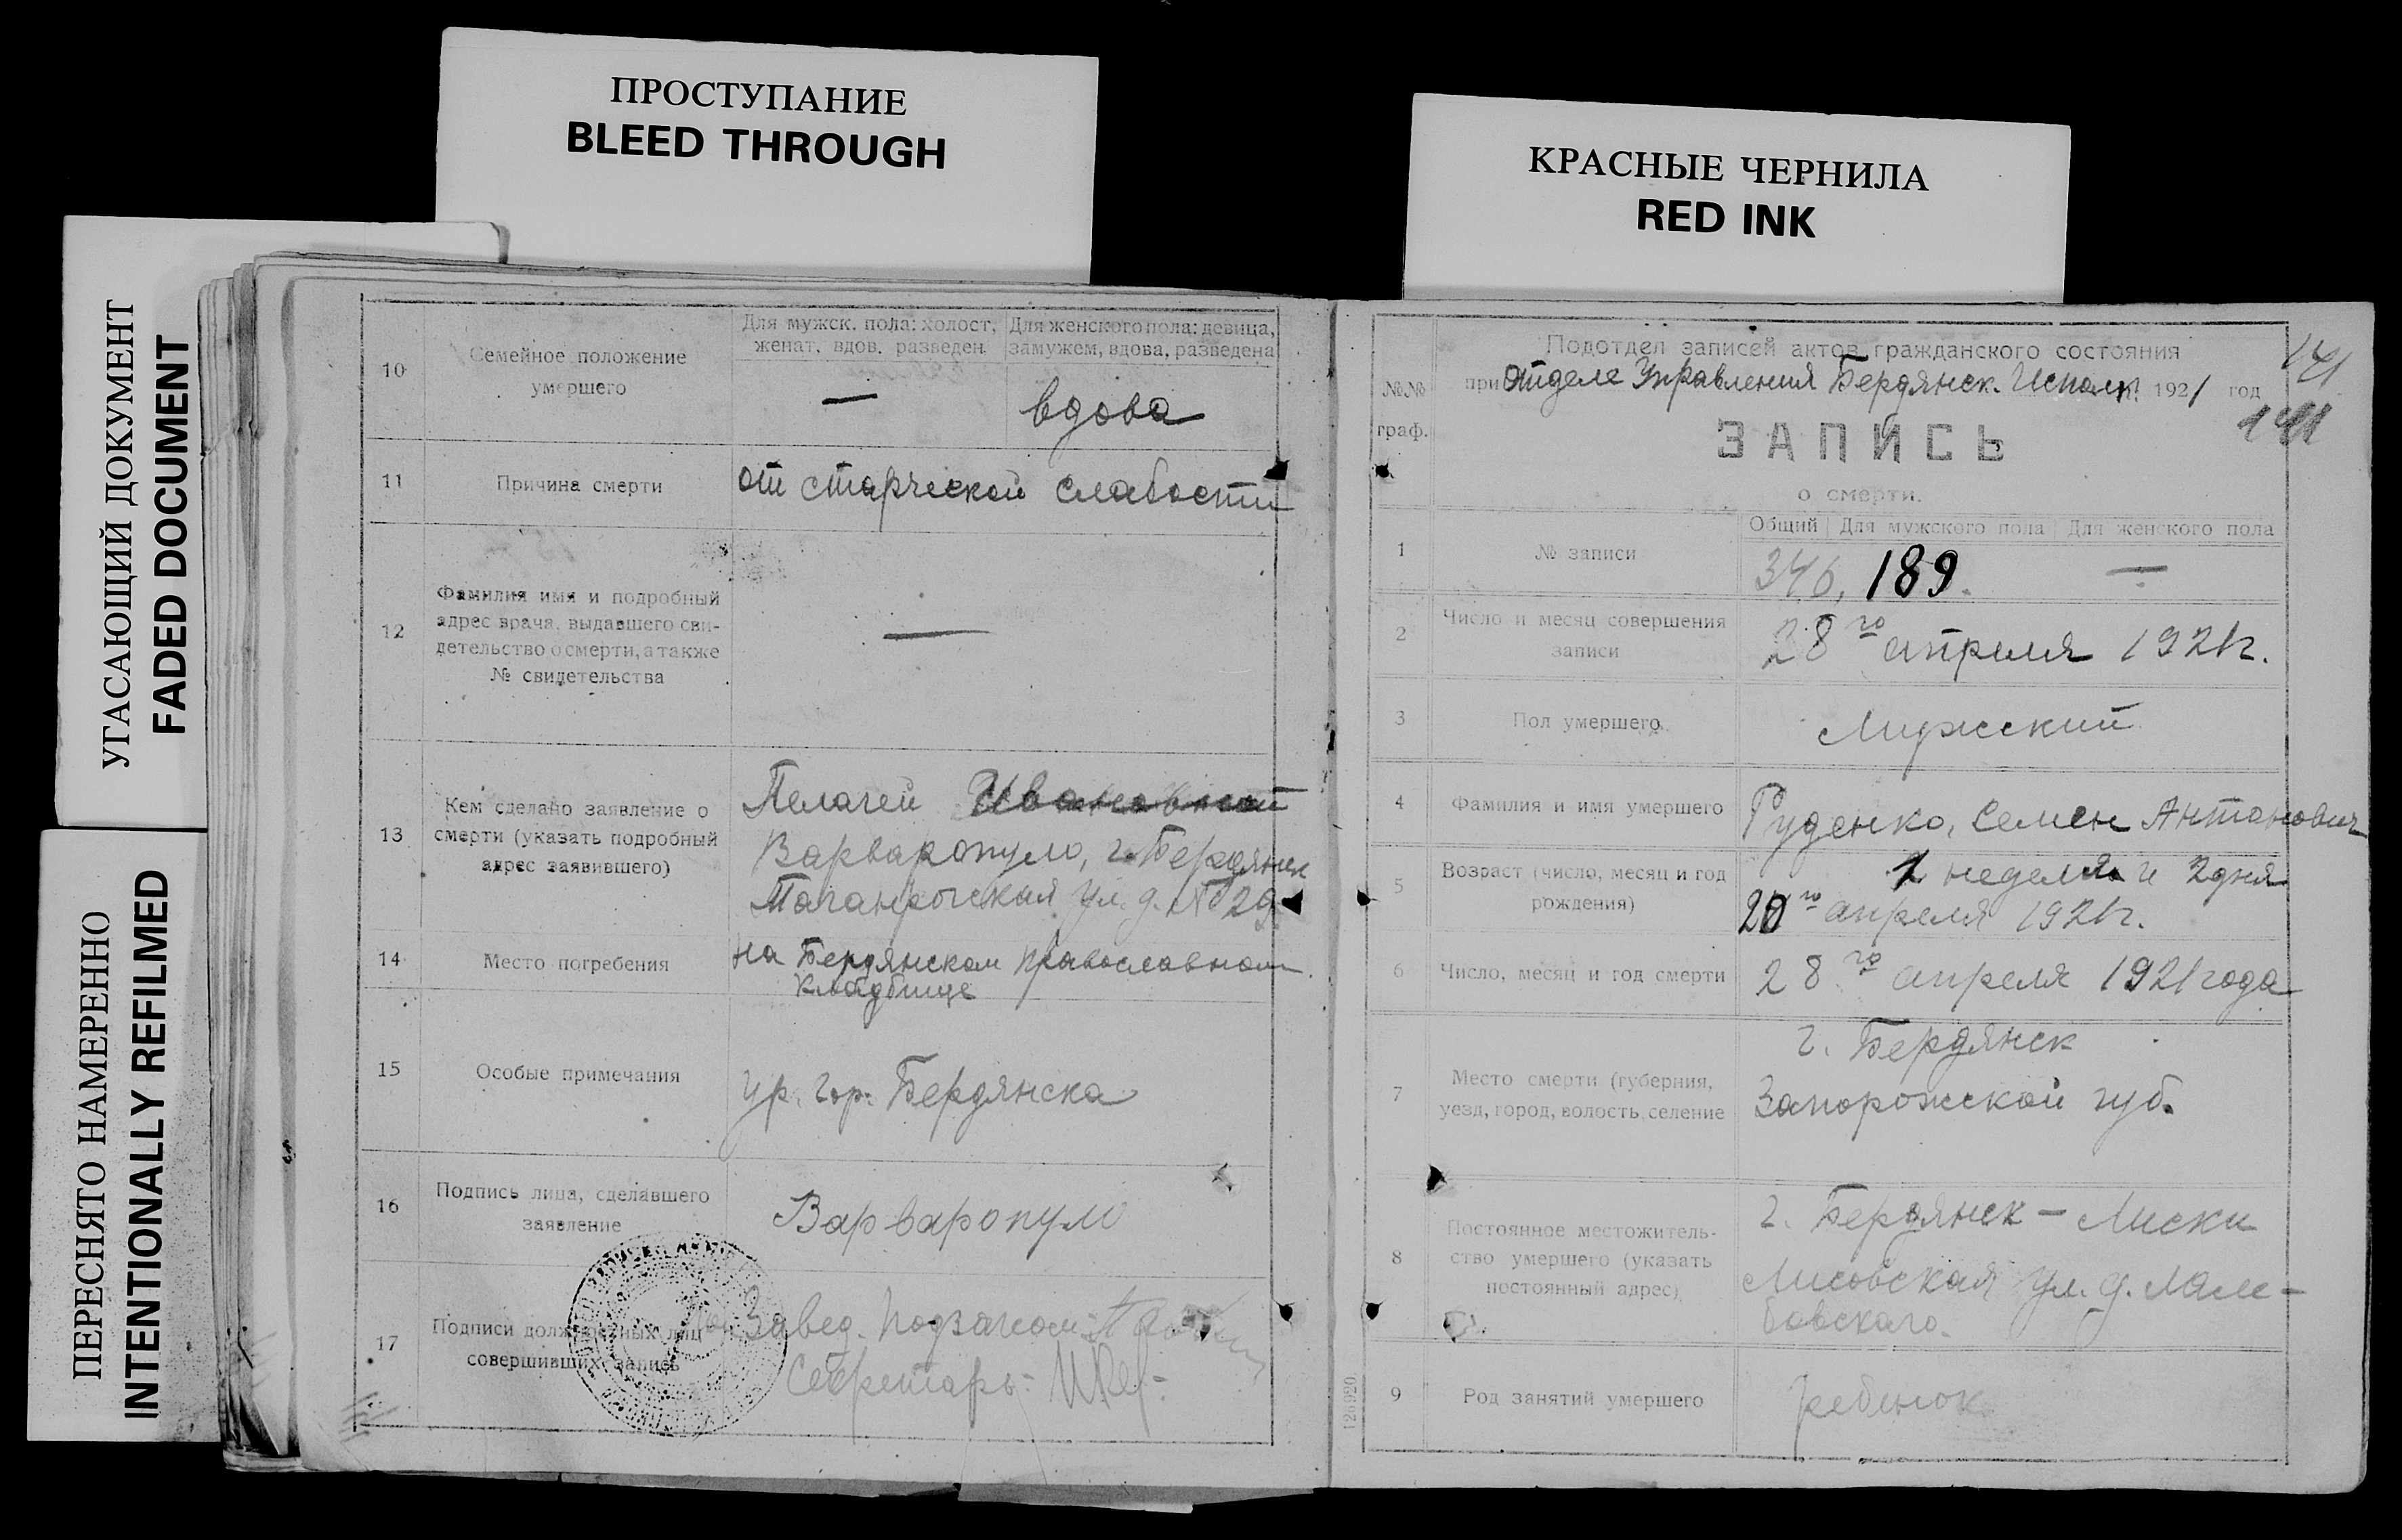 ПРОСТУПАНИЕ
BLEED THROUGH
КРАСНЫЕ ЧЕРНИЛА
RED INK
УГАСАЮЩИЙ ДОКУМЕНТ
FADED DOCUMENT
ПЕРЕСНЯТО НАМЕРЕННО
INTENTIONALLY REFILMED
10
Семейное положение
умершего
Для мужск. пола: холост,
женат, вдов. разведен.
—
Для женского пола: девица,
замужем, вдова, разведена
вдова
11
Причина смерти
от старческой слабости
12
Фамилия имя и подробный
адрес врача, выдавшего сви-
детельство о смерти, а также
№ свидетельства
—
13
Кем сделано заявление о
смерти (указать подробный
адрес заявившего)
Пелагей Ивановной
Варваропуло, г. Бердянск
Таганрогская ул. д. № 29.
14
Место погребения
на Бердянском православном
кладбище
15
Особые примечания
ур. гор. Бердянска
16
Подпись лица, сделавшего
заявление
Варваропуло
17
Подписи должностных лиц
совершивших запись
Завед. Подзагсом
Секретарь:
№№
граф.
Подотдел записей актов гражданского состояния
при Отделе Управления Бердянск. Исполк. 1921 год
141
141
ЗАПИСЬ
о смерти.
1
№ записи
Общий
Для мужского пола
Для женского пола
346, 189. —
2
Число и месяц совершения
записи
28го апреля 1921г.
3
Пол умершего
Мужский
4
Фамилия и имя умершего
Руденко, Семен Антонович
5
Возраст (число, месяц и год
рождения)
1 неделя и 2 дня
20го апреля 1921г.
6
Число, месяц и год смерти
28го апреля 1921 года
7
Место смерти (губерния,
уезд, город, волость, селение
г. Бердянск
Запорожской губ.
8
Постоянное местожитель-
ство умершего (указать
постоянный адрес)
г. Бердянск — Лиски
ул. д.
9
Род занятий умершего
ребенок
126920